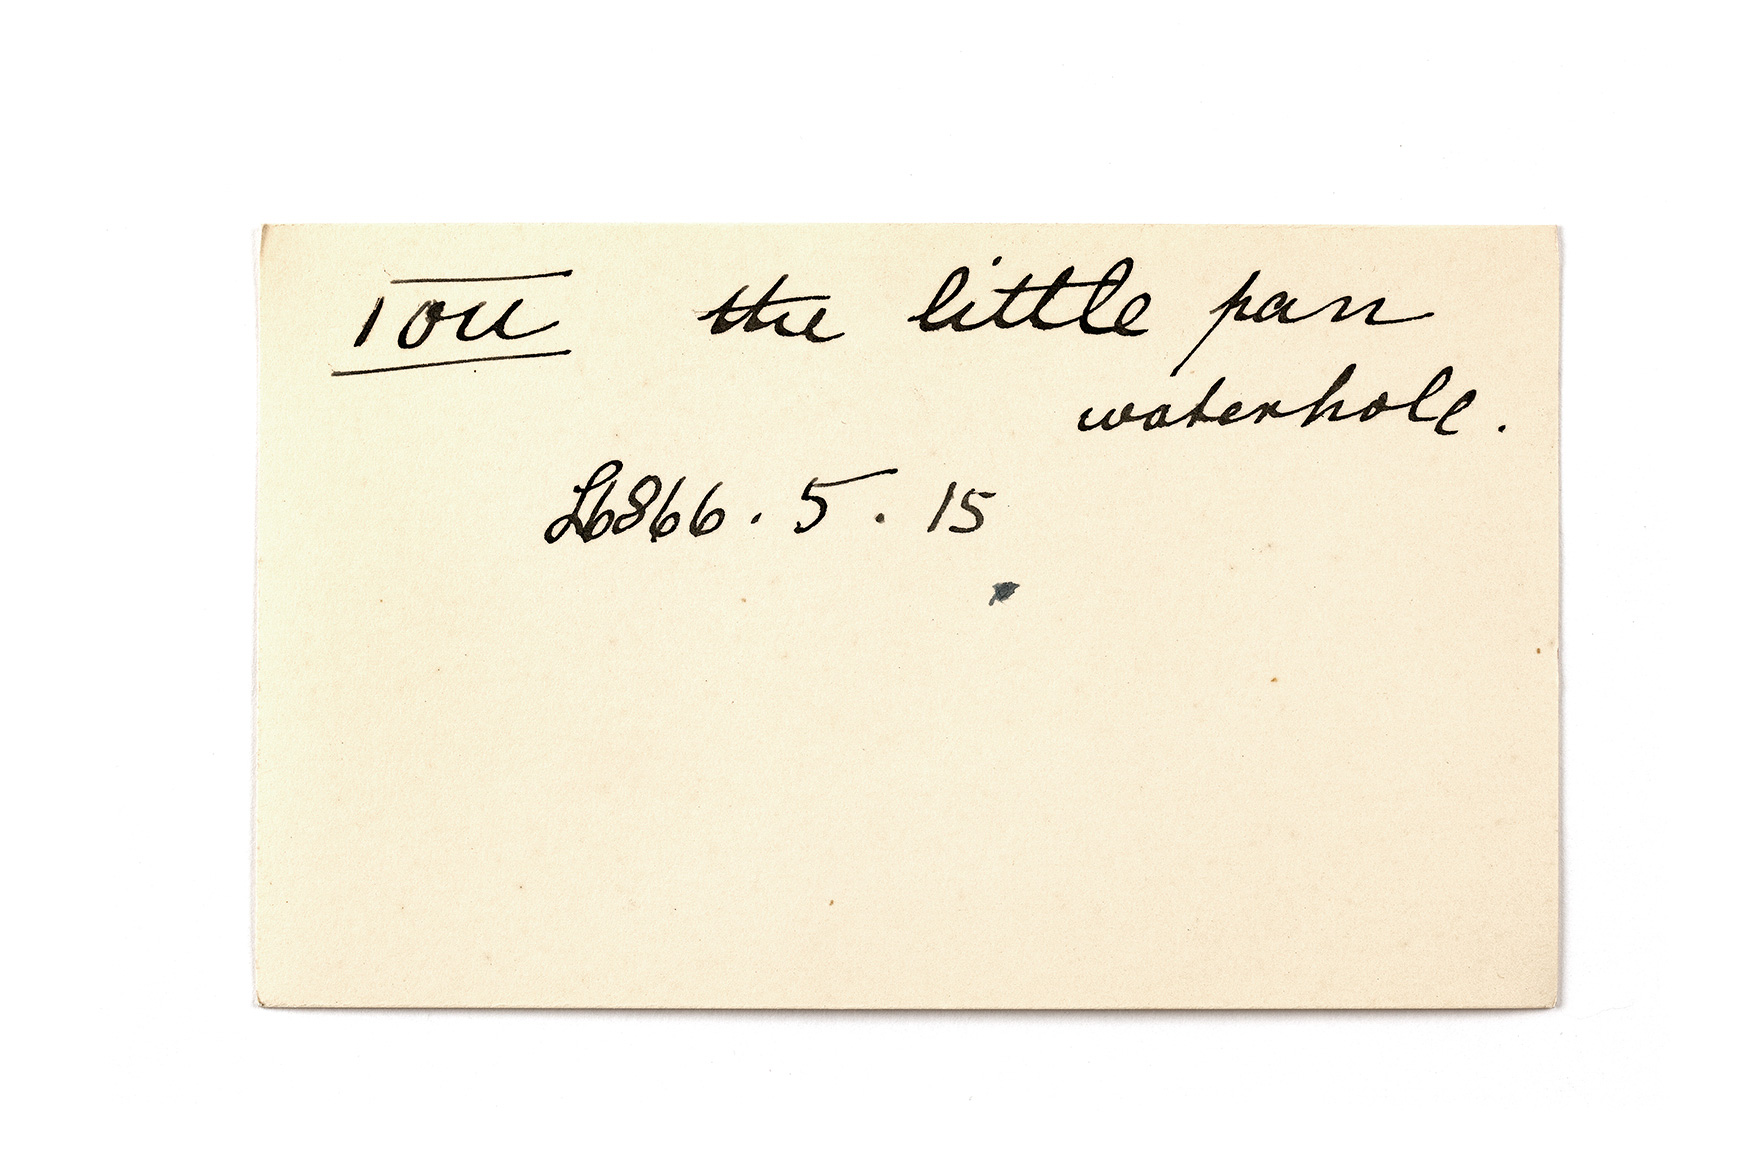 ǀou the little pan
waterhole.
L6866. 5. 15